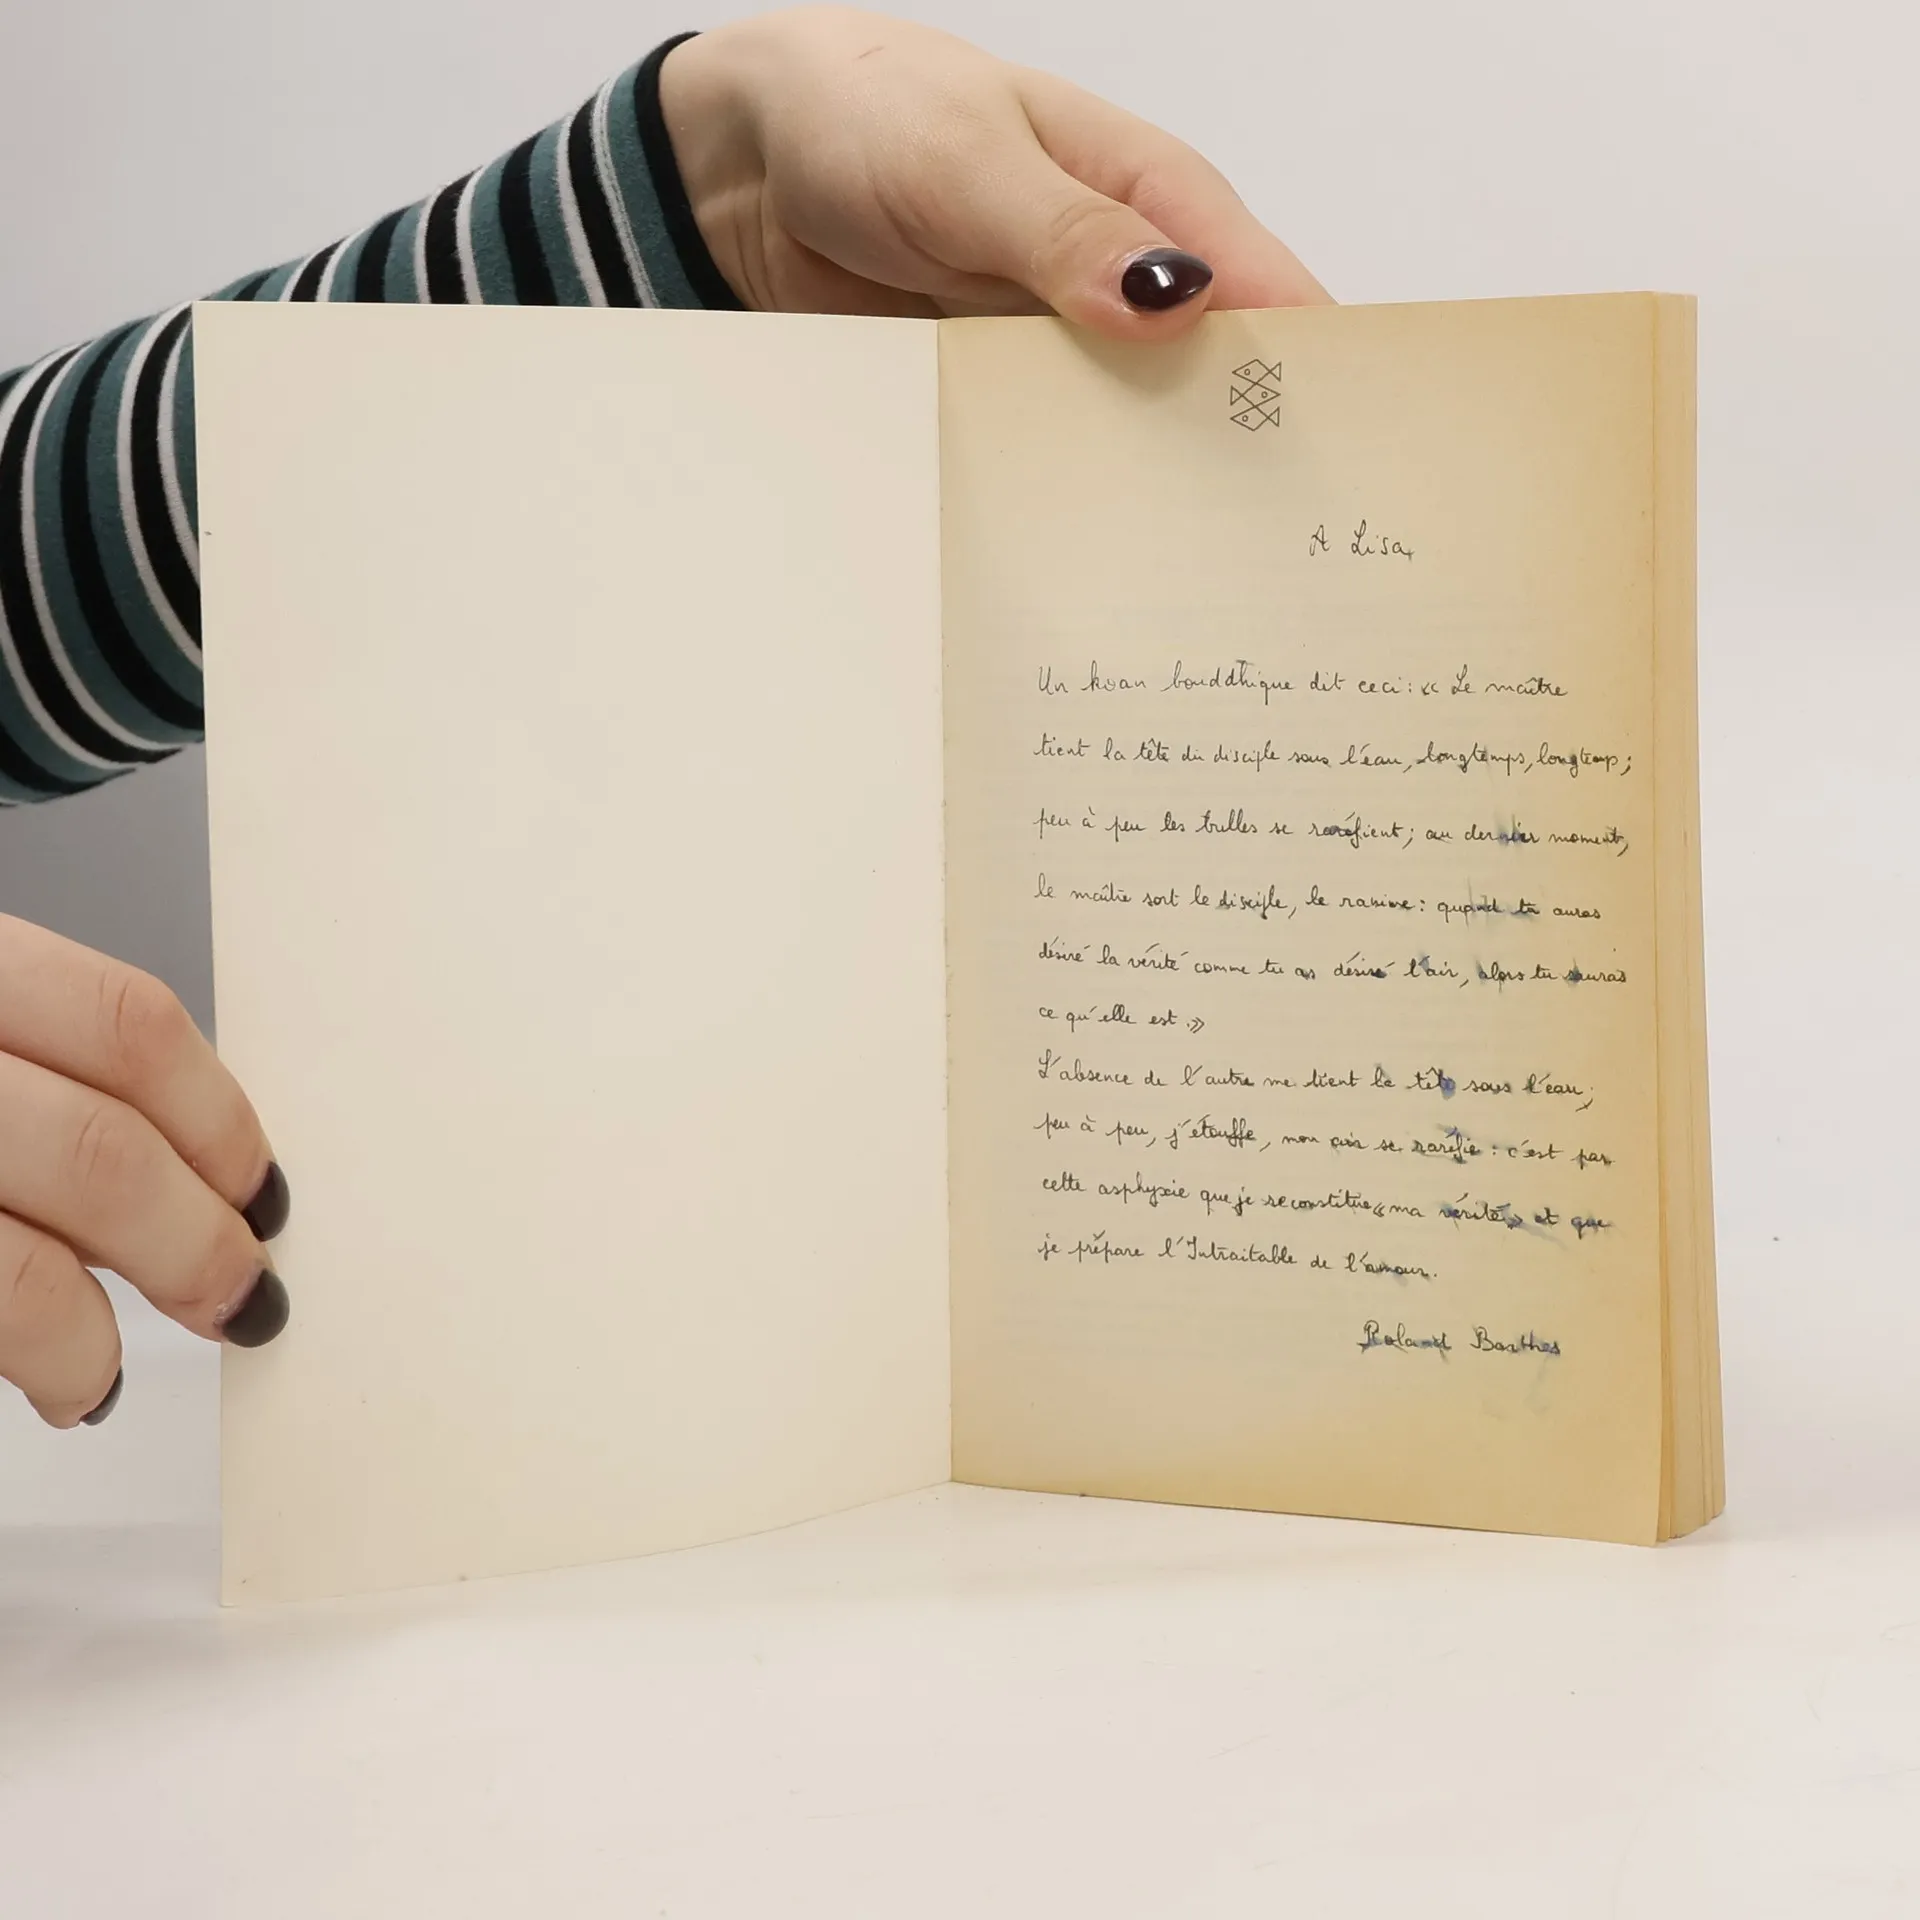 A Lisa,
Un koan bouddhique dit ceci : « Le maître
tient la tête du disciple sous l'eau, longtemps, longtemp ;
peu à peu les bulles se raréfient ; au dernier moment,
le maître sort le disciple, le ranime : quand tu auras
désiré la vérité comme tu as désiré l'air, alors tu sauras
ce qu'elle est. »
L'absence de l'autre me tient la tête sous l'eau ;
peu à peu, j'étouffe, mon air se raréfie : c'est par
cette asphyxie que je reconstitue « ma vérité » et que
je prépare l'Intraitable de l'amour.
Roland Barthes